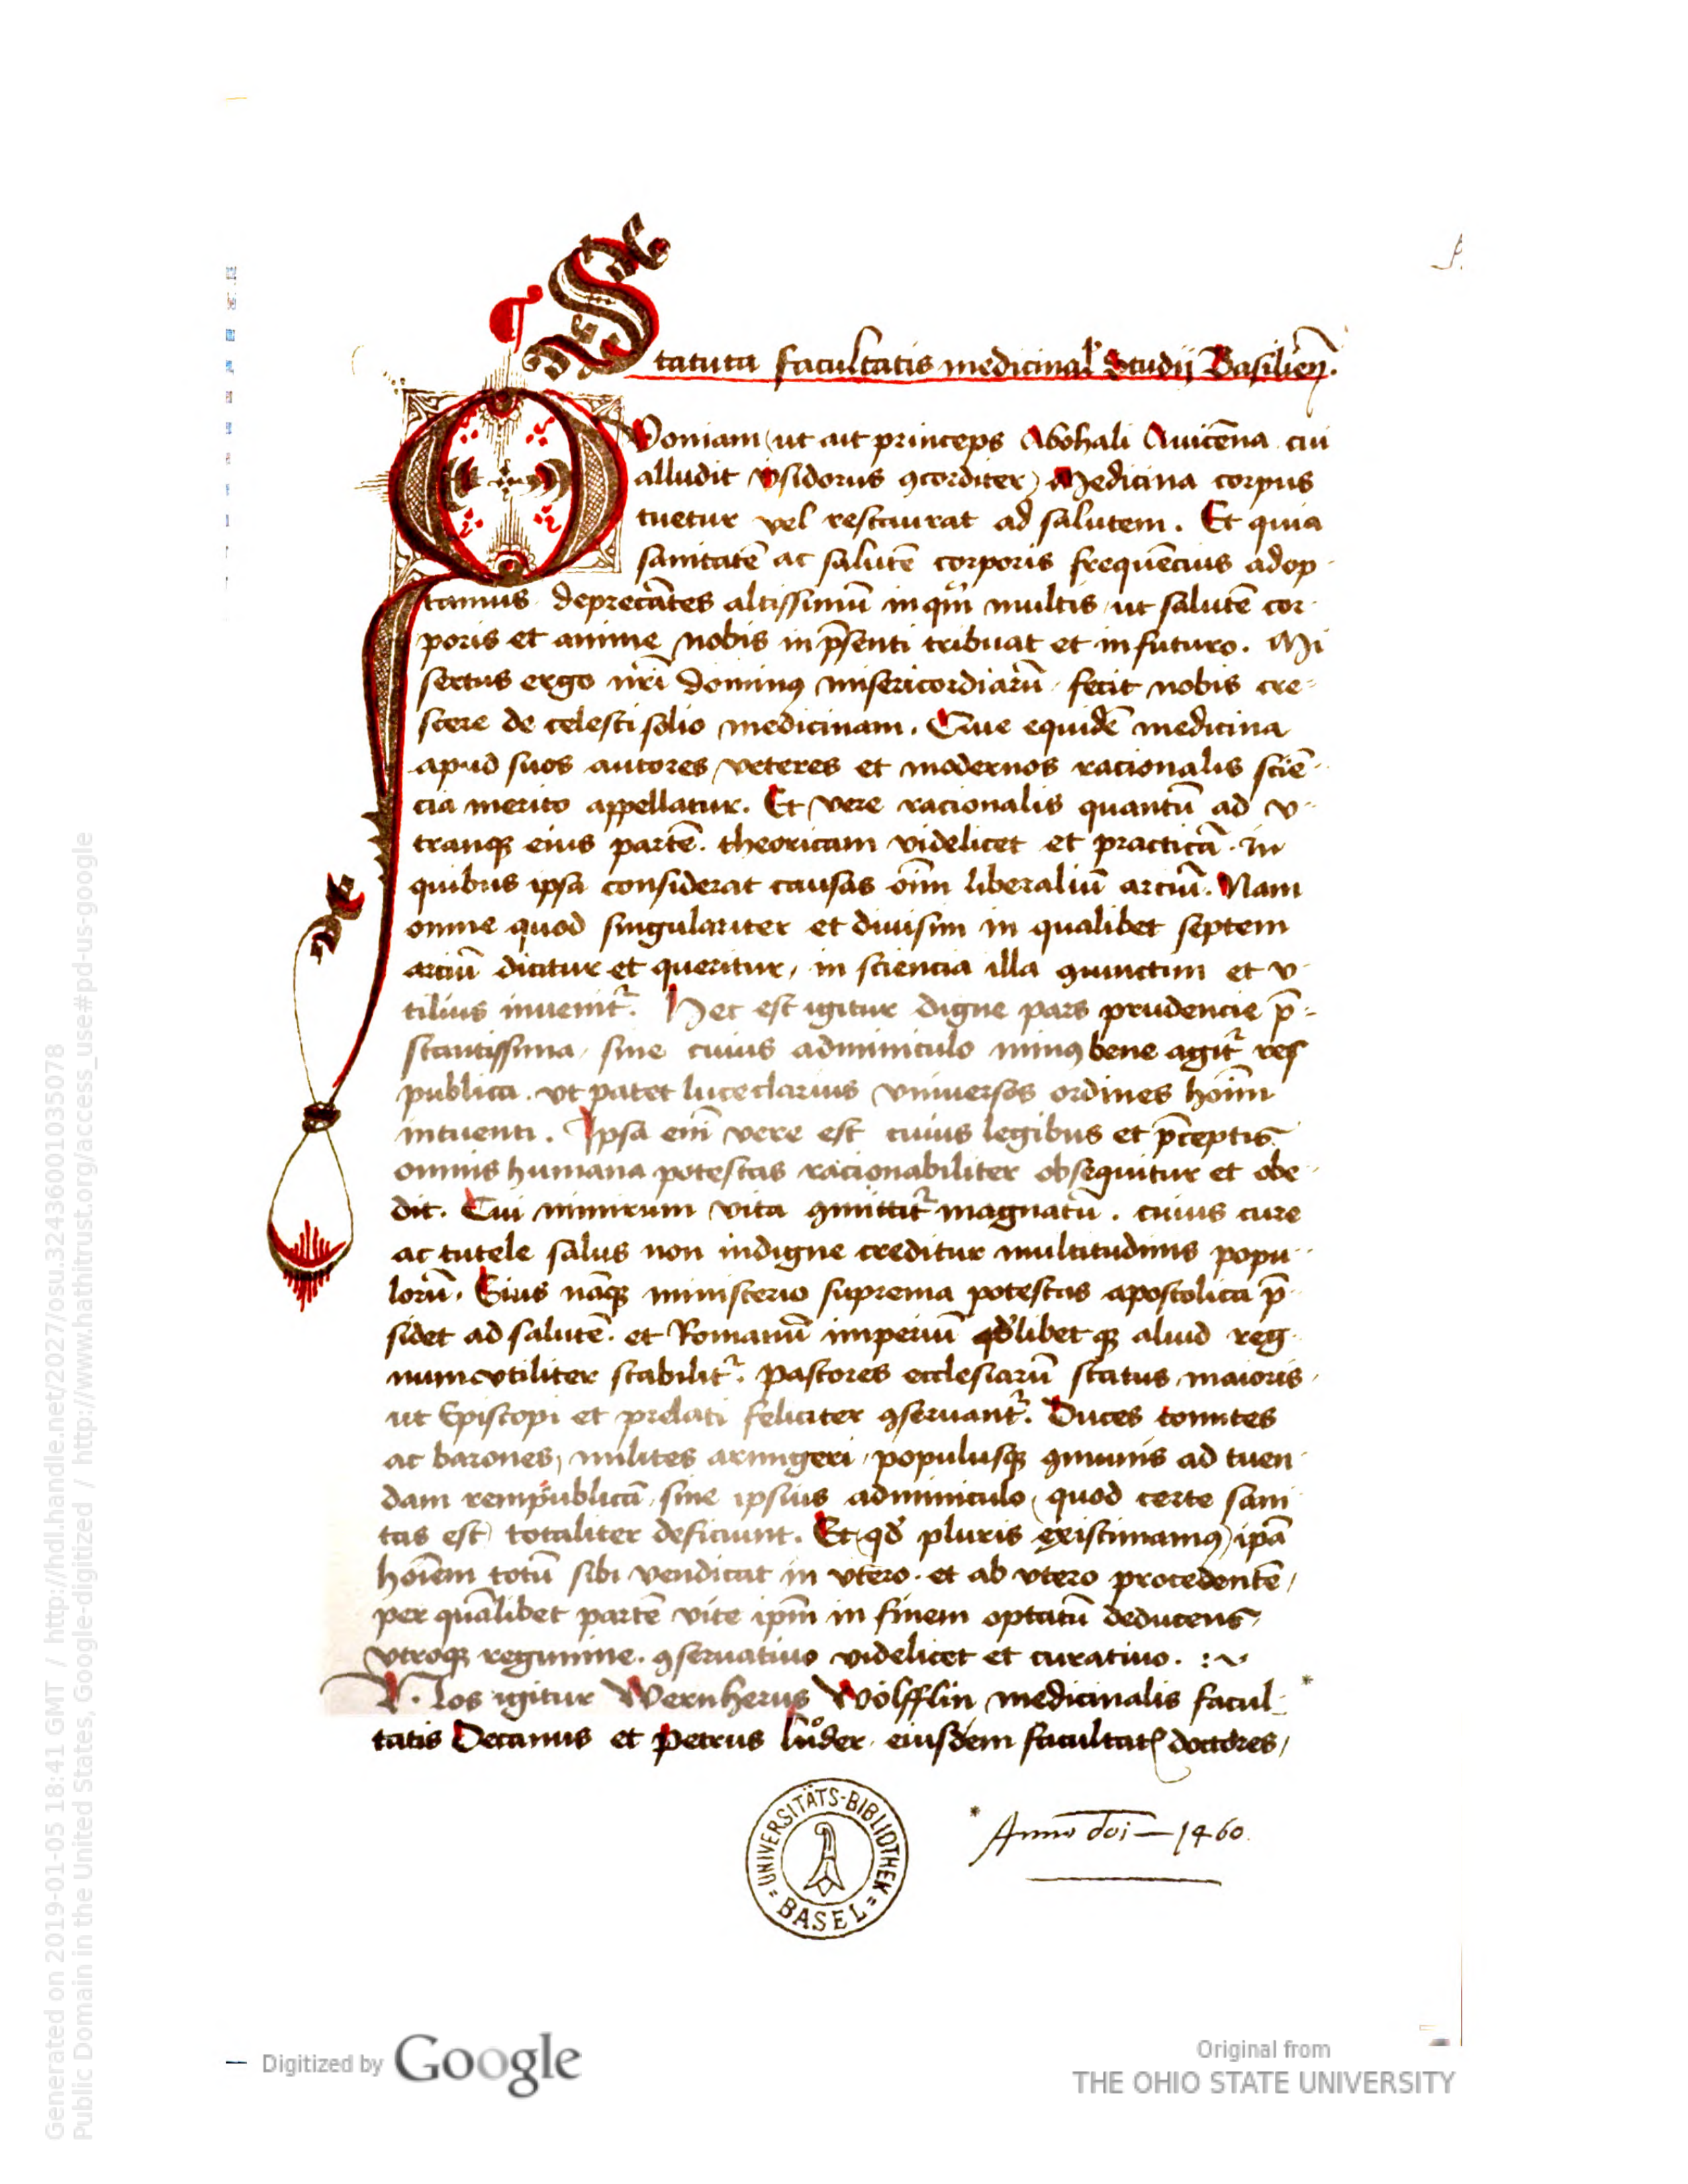 Statuta facultatis medicinal Studij Basilien̄.
Qvoniam ut ait princeps Abohali Auicēna cui
alludit ysidorus ꝯcorditer) Medicina corpus
tuetur vel restaurat ad salutem. Et quia
sanitatē ac salutē corporis frequēcius adop-
tamus deprecātes altissimū in multis ut salutē cor-
poris et anime nobis in p̄senti tribuat et in futuro. Mi
sertus ergo nr̄i dominꝰ misericordiarū fecit nobis cre-
scere de celesti solio medicinam. Que equidē medicina
apud suos autores veteres et modernos racionalis sciē-
cia merito appellatur. Et vere racionalis quantū ad v-
tranqꝫ eius partē. theoricam videlicet et practicā. in
quibus ipsa considerat causas oīm liberaliū arciū. Nam
omne quod singulariter et diuisim in qualibet septem
arciū dicitur et queritur, in sciencia illa ꝯiunctim et v-
tilius inuenit᷑. Hec est igitur digne pars prudencie p̄-
stantissima, sine cuius adminiculo minꝰ bene agit᷑ res
publica. vt patet luce clarius vniuersos ordines hoīm
intuenti. Ipsa em̄ vere est cuius legibus et p̄ceptis
omnis humana potestas racionabiliter obsequitur et obe-
dit. Cui nimirum vita ꝯmittit᷑ magnatū. cuius cure
ac tutele salus non indigne creditur multitudinis popu-
lorū. Eius nāqꝫ ministerio suprema potestas apostolica p̄-
sidet ad salutē. et Romanū imperiū qdlibetqꝫ aliud reg-
num vtiliter stabilit᷑. Pastores ecclesiarū status maioris
ut Episcopi et prelati feliciter ꝯseruant᷑. Duces comites
ac barones, milites armigeri, populusqꝫ ꝯmunis ad tuen-
dam rempublicā, sine ipsius adminiculo (quod certe sani
tas est) totaliter deficiunt. Et (qd pluris existimamꝰ) ip̄ā
hoīem totū sibi vendicat in vtero. et ab vtero procedentē,
per quālibet partē vite ip̄m in finem optatū deducens
vtroqꝫ regimine. ꝯseruatiuo videlicet et curatiuo. :~
Nos igitur Wernherus Wölfflin medicinalis facul- *
tatis Decanus et Petrus lůder eiusdem facultatꝭ doctores,
* Anno doī – 1460.
= UNIVERSITÄTS-BIBLIOTHEK = BASEL
Digitized by Google
Original from
THE OHIO STATE UNIVERSITY
Generated on 2019-01-05 18:41 GMT / http://hdl.handle.net/2027/osu.32436001035078
Public Domain in the United States, Google-digitized / http://www.hathitrust.org/access_use#pd-us-google